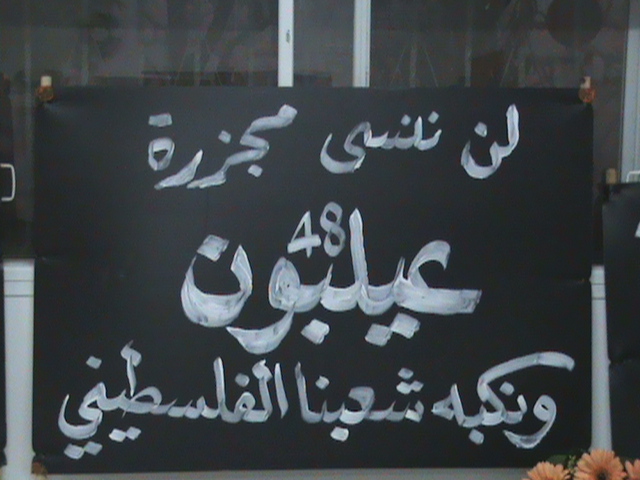 لن ننسى مجزرة
عيلبون 48
ونكبه شعبنا الفلسطيني